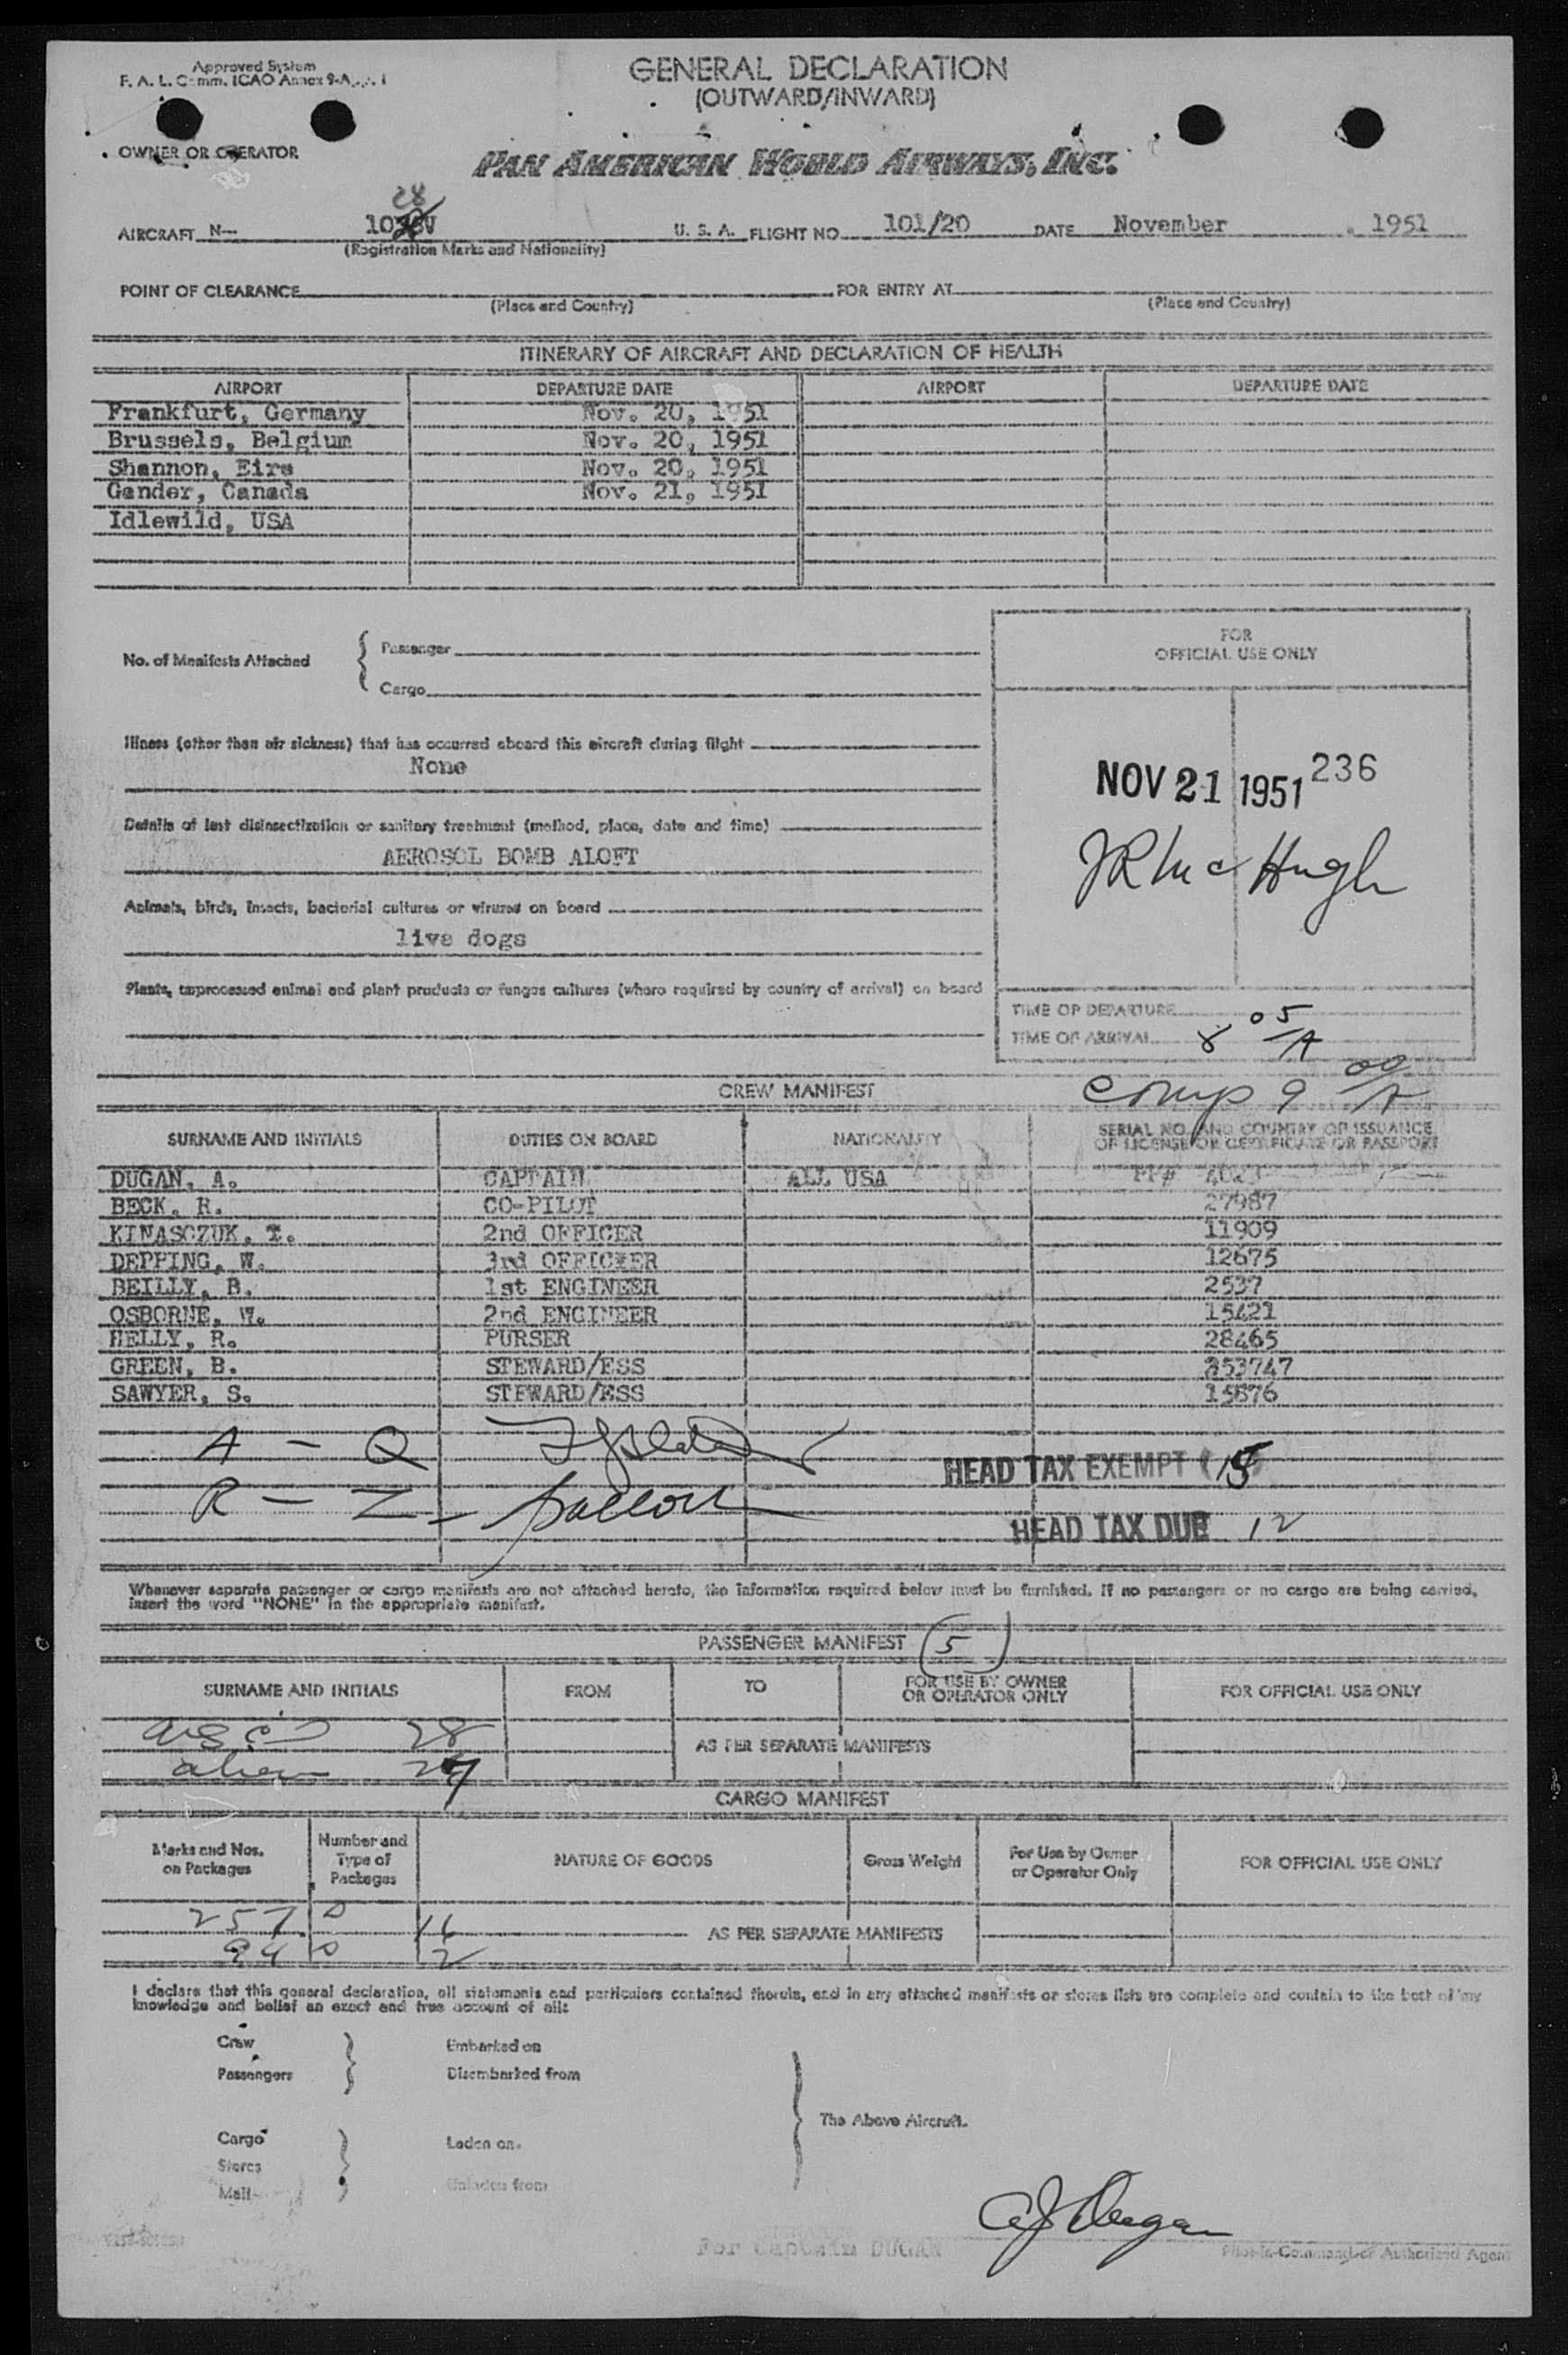 Approved System
F. A. L. Comm. ICAO Annex 9-App. 1
GENERAL DECLARATION
(OUTWARD/INWARD)
OWNER OR OPERATOR
PAN AMERICAN WORLD AIRWAYS, INC.
28
AIRCRAFT N— 10 V U. S. A. FLIGHT NO. 101/20 DATE November , 1951
(Registration Marks and Nationality)
POINT OF CLEARANCE FOR ENTRY AT
(Place and Country) (Place and Country)
ITINERARY OF AIRCRAFT AND DECLARATION OF HEALTH
AIRPORT DEPARTURE DATE AIRPORT DEPARTURE DATE
Frankfurt, Germany Nov. 20, 1951
Brussels, Belgium Nov. 20, 1951
Shannon, Eire Nov. 20, 1951
Gander, Canada Nov. 21, 1951
Idlewild, USA
FOR
OFFICIAL USE ONLY
No. of Manifests Attached
Passenger
Cargo
Illness (other than air sickness) that has occurred aboard this aircraft during flight
None
NOV 21 1951 236
Details of last disinsectization or sanitary treatment (method, place, date and time)
AEROSOL BOMB ALOFT
JR McHugh
Animals, birds, insects, bacterial cultures or viruses on board
live dogs
Plants, unprocessed animal and plant products or fungus cultures (where required by country of arrival) on board
TIME OF DEPARTURE
TIME OF ARRIVAL 8 05/A
CREW MANIFEST
Comp 9 00/A
SURNAME AND INITIALS DUTIES ON BOARD NATIONALITY SERIAL NO. AND COUNTRY OF ISSUANCE
OF LICENSE OR CERTIFICATE OR PASSPORT
DUGAN, A. CAPTAIN ALL USA PP#
BECK, R. CO-PILOT 27987
KINASCZUK, T. 2nd OFFICER 11909
DEPPING, W. 3rd OFFICER 12675
BEILLY, B. 1st ENGINEER 2537
OSBORNE, W. 2nd ENGINEER 15421
HELLY, R. PURSER 28465
GREEN, B. STEWARD/ESS 353747
SAWYER, S. STEWARD/ESS 15876
A — Q
HEAD TAX EXEMPT (15
R — Z —
HEAD TAX DUE 12
Whenever separate passenger or cargo manifests are not attached hereto, the information required below must be furnished. If no passengers or no cargo are being carried,
insert the word "NONE" in the appropriate manifest.
PASSENGER MANIFEST (5)
SURNAME AND INITIALS FROM TO FOR USE BY OWNER
OR OPERATOR ONLY FOR OFFICIAL USE ONLY
28
AS PER SEPARATE MANIFESTS
alien 27
CARGO MANIFEST
Marks and Nos.
on Packages
Number and
Type of
Packages
NATURE OF GOODS
Gross Weight
For Use by Owner
or Operator Only
FOR OFFICIAL USE ONLY
AS PER SEPARATE MANIFESTS
I declare that this general declaration, all statements and particulars contained therein, and in any attached manifests or stores lists are complete and contain to the best of my
knowledge and belief an exact and true account of all:
Crew Embarked on
Passengers Disembarked from
The Above Aircraft.
Cargo Laden on.
Stores
Mail Unladen from
A J Dugan
For Captain DUGAN
Pilot-in-Command or Authorized Agent